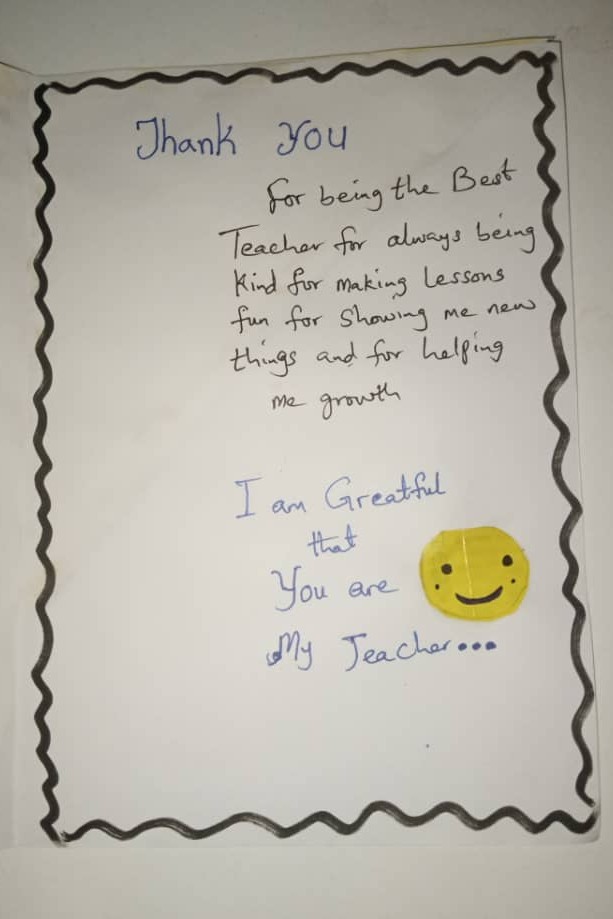 Thank You
for being the Best
Teacher for always being
kind for making Lessons
fun for showing me new
things and for helping
me growth
I am Greatful
that
You are
My Teacher...